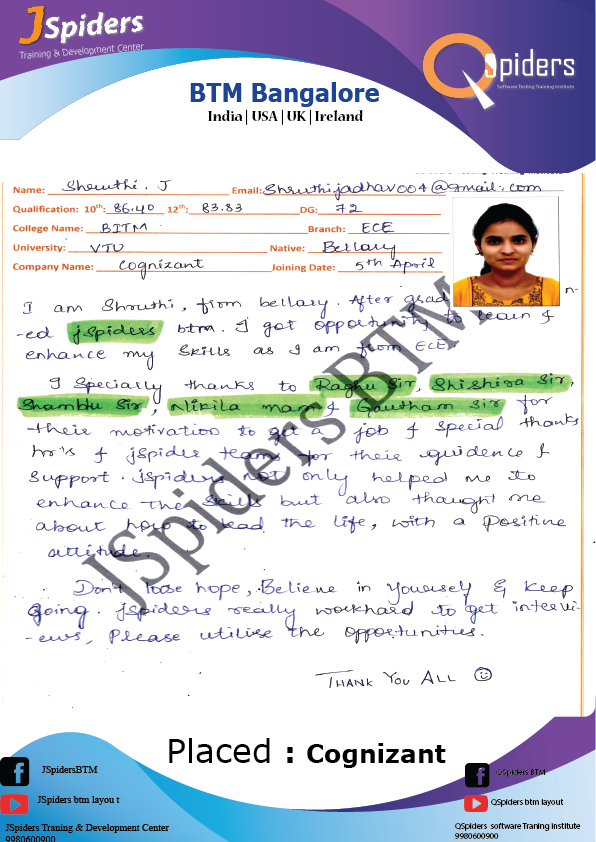 JSpiders
Training & Development Center
QSpiders
Software Testing Training Institute
BTM Bangalore
India| USA | UK | Ireland
Name: Shruthi. J Email: Shruthijadhav004@gmail.com
Qualification: 10th: 86.40 12th: 83.83 DG: 72
College Name: BITM Branch: ECE
University: VTU Native: Bellary
Company Name: Cognizant Joining Date: 5th April
I am Shruthi, from bellary. After grad n-
-ed jspiders btm. I got opportunity to learn &
enhance my skills as I am from ECE.
I Specially thanks to Raghu Sir, Shishira Sir,
Shambhu Sir, Nikila mam & Gautham sir for
their motivation to get a job & special thanks
hr's & jspider teams for their guidence &
Support. jspiders not only helped me to
enhance the skills but also thaught me
about how to lead the life, with a positive
attitude.
Don't loose hope, Believe in yourself & keep
going. jspiders really workhard to get intervi-
-ews, Please utilise the opportunities.
THANK YOU ALL ☺
JSpiders BTM
Placed : Cognizant
JSpidersBTM
QSpiders BTM
JSpiders btm layou t
QSpiders btm layout
JSpiders Traning & Development Center
9980600900
QSpiders software Traning Institute
9980600900